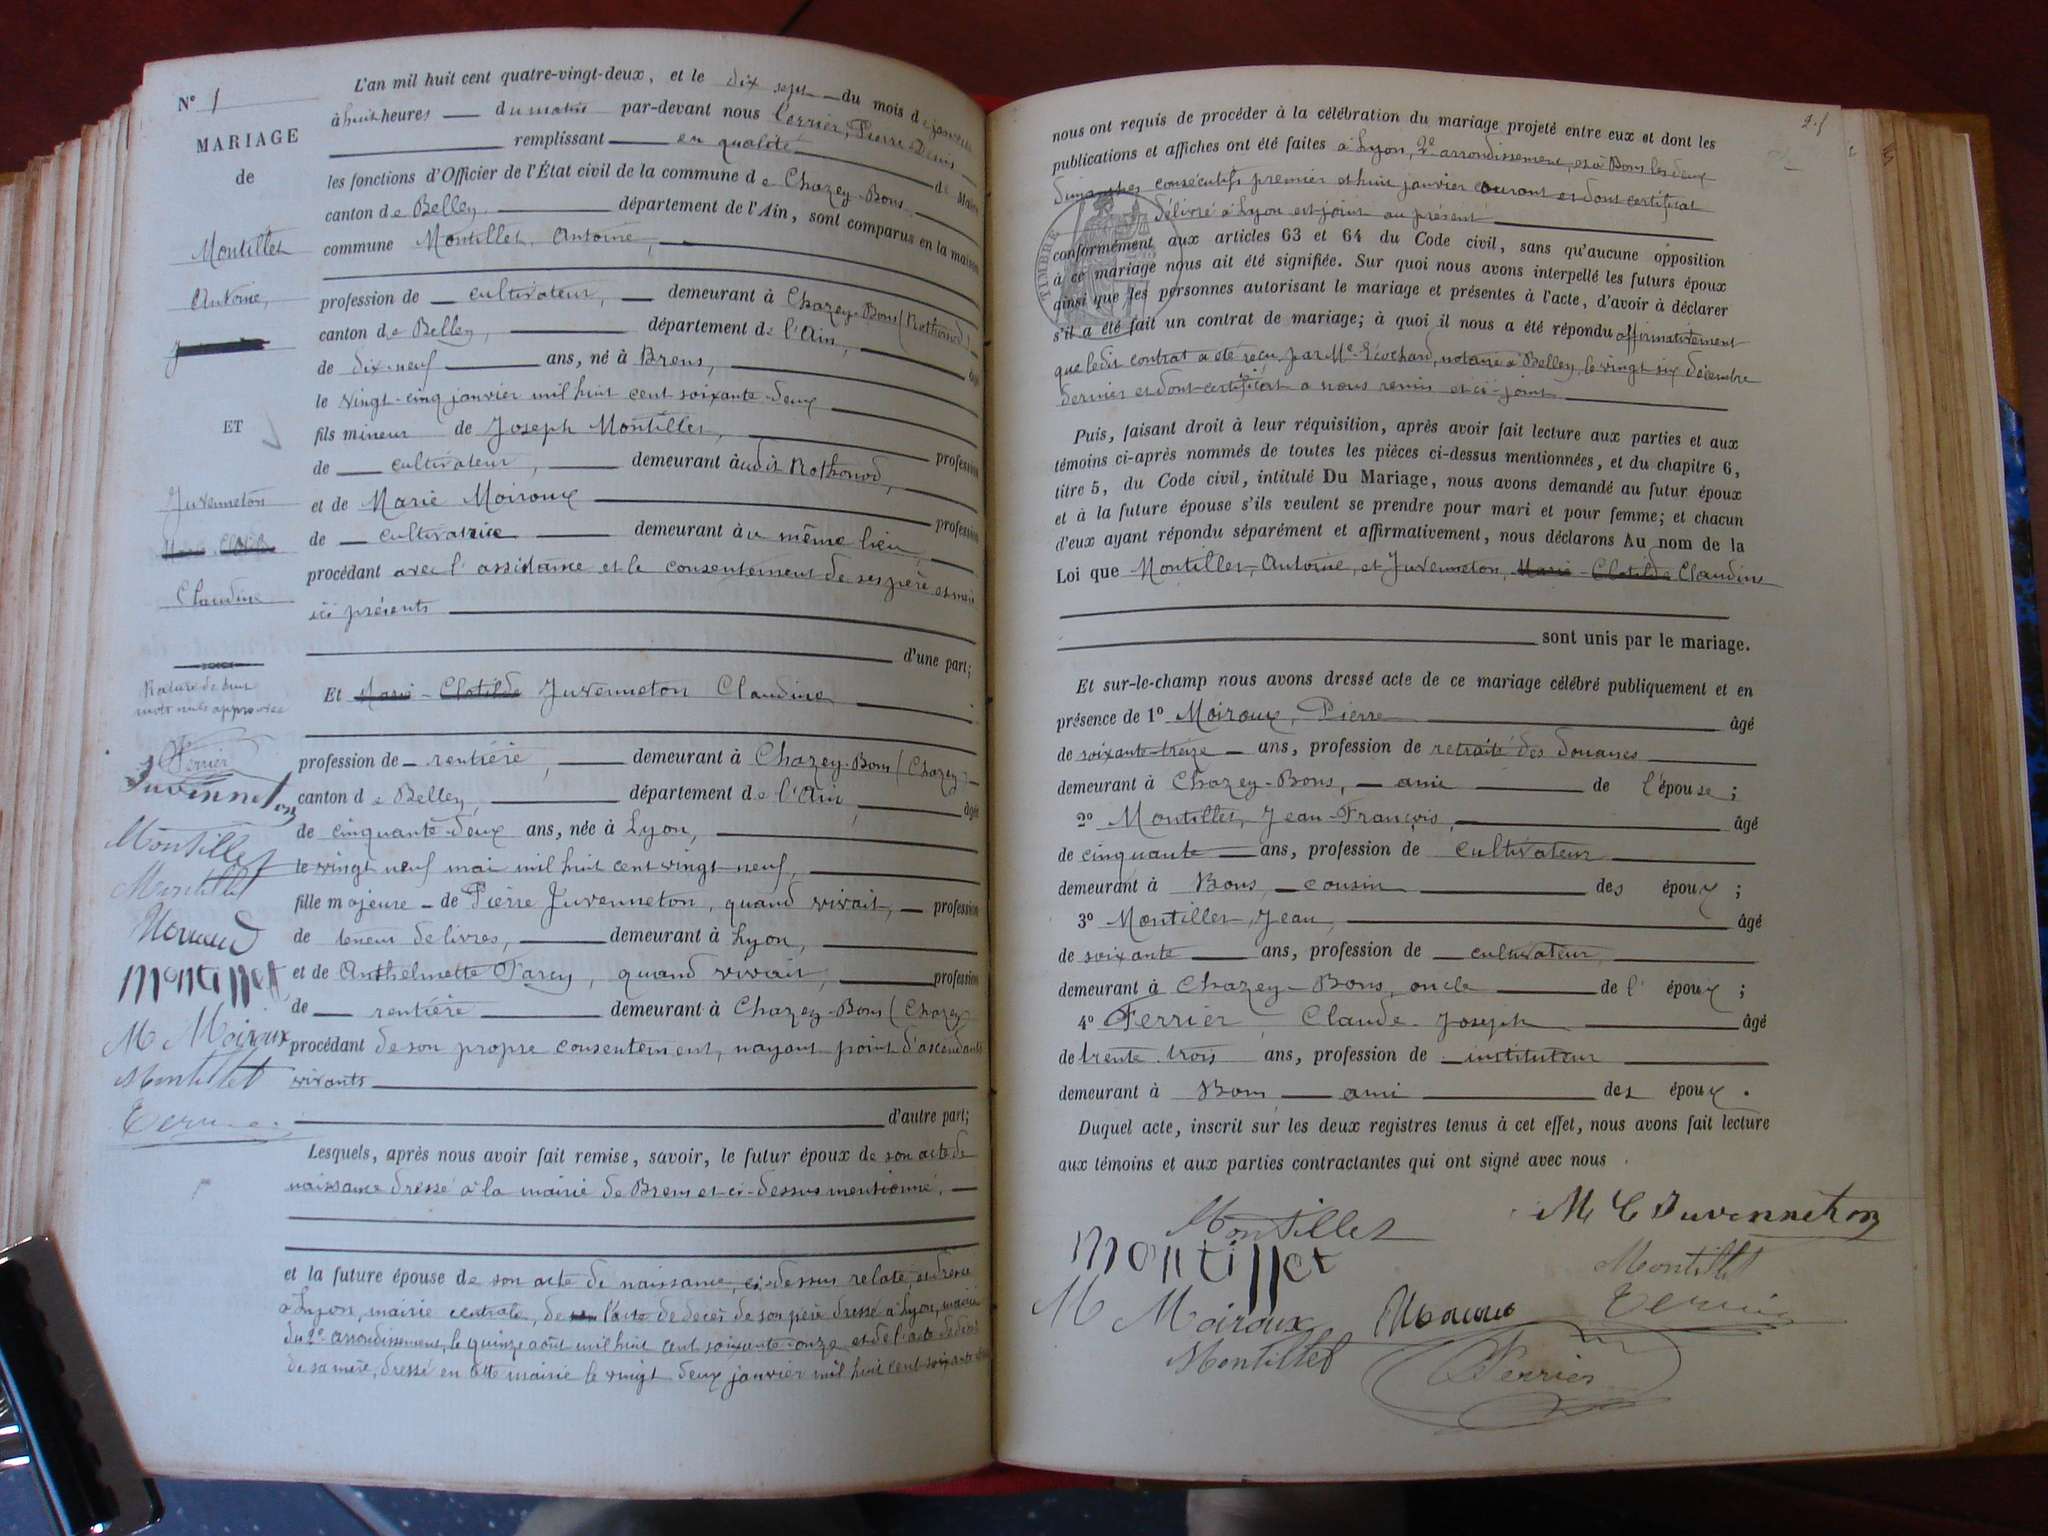 N° 1
MARIAGE
de
Montillet
Antoine,
ET
Juvenneton
Marie Clotilde
Claudine
Rature de deux
mots nuls approuvée
Perrier
Juvenneton
Montillet
Montillet
Montillet
M Moiroux
Montillet
L'an mil huit cent quatre-vingt-deux, et le dix sept du mois de janvier
à huit heures du matin par-devant nous Perrier, Pierre-Denis
remplissant en qualité de Maire
les fonctions d'Officier de l'État civil de la commune de Chazey-Bons
canton de Belley département de l'Ain, sont comparus en la maison
commune Montillet, Antoine,
profession de cultivateur, demeurant à Chazey-Bons (Rothonod)
canton de Belley, département de l'Ain, âgé
de dix-neuf ans, né à Brens,
le vingt-cinq janvier mil huit cent soixante-deux
fils mineur de Joseph Montillet, profession
de cultivateur, demeurant àudit Rothonod,
et de Marie Moiroux profession
de cultivatrice demeurant àu même lieu,
procédant avec l'assistance et le consentement de ses père et mère
ici présents
d'une part;
Et Marie-Clotilde Juvenneton Claudine
profession de rentière, demeurant à Chazey-Bons (Chazey)
canton de Belley, département de l'Ain, âgée
de cinquante-deux ans, née à Lyon,
le vingt neuf mai mil huit cent vingt-neuf,
fille majeure de Pierre Juvenneton, quand vivait, profession
de teneur de livres, demeurant à Lyon,
et de Anthelmette Parcy, quand vivait, profession
de rentière demeurant à Chazey-Bons (Chazey
procédant de son propre consentement, nayant point d'ascendants
vivants
d'autre part;
Lesquels, après nous avoir fait remise, savoir, le futur époux de son acte de
naissance dressé à la mairie de Brens et ci-dessus mentionné,
et la future épouse de son acte de naissance, ci-dessus relaté, et dressé
à Lyon, mairie centrale, de l'acte de décès de son père dressé à Lyon, mairie
du 2e arrondissement, le quinze août mil huit cent soixante-onze et de l'acte de décès
de sa mère, dressé en cette mairie le vingt deux janvier mil huit cent soixante
2.f
nous ont requis de procéder à la célébration du mariage projeté entre eux et dont les
publications et affiches ont été faites à Lyon, 2e arrondissement, et à Bons les deux
dimanches consécutifs premier et huit janvier courant et dont certificat
délivré à Lyon est joint au présent
TIMBRE
conformément aux articles 63 et 64 du Code civil, sans qu'aucune opposition
à ce mariage nous ait été signifiée. Sur quoi nous avons interpellé les futurs époux
ainsi que les personnes autorisant le mariage et présentes à l'acte, d'avoir à déclarer
s'il a été fait un contrat de mariage; à quoi il nous a été répondu affirmativement
que ledit contrat a été reçu par Me notaire à Belley, le vingt six décembre
dernier et dont certificat a nous remis et ci-joint
Puis, faisant droit à leur réquisition, après avoir fait lecture aux parties et aux
témoins ci-après nommés de toutes les pièces ci-dessus mentionnées, et du chapitre 6,
titre 5, du Code civil, intitulé Du Mariage, nous avons demandé au futur époux
et à la future épouse s'ils veulent se prendre pour mari et pour femme; et chacun
d'eux ayant répondu séparément et affirmativement, nous déclarons Au nom de la
Loi que Montillet, Antoine, et Juvenneton, Marie-Clotilde Claudine
sont unis par le mariage.
Et sur-le-champ nous avons dressé acte de ce mariage célébré publiquement et en
présence de 1° Moiroux, Pierre âgé
de soixante-treize ans, profession de retraité des douanes
demeurant à Chazey-Bons, ami de l'épouse;
2° Montillet, Jean-François, âgé
de cinquante ans, profession de cultivateur
demeurant à Bons, cousin des époux;
3° Montillet, Jean, âgé
de soixante ans, profession de cultivateur,
demeurant à Chazey-Bons, oncle de l'époux;
4° Ferrier, Claude-Joseph âgé
de trente trois ans, profession de instituteur
demeurant à Bons ami des époux.
Duquel acte, inscrit sur les deux registres tenus à cet effet, nous avons fait lecture
aux témoins et aux parties contractantes qui ont signé avec nous.
Montillet
M C Juvenneton
Montillet
Montillet
M Moiroux
Montillet
Perrier